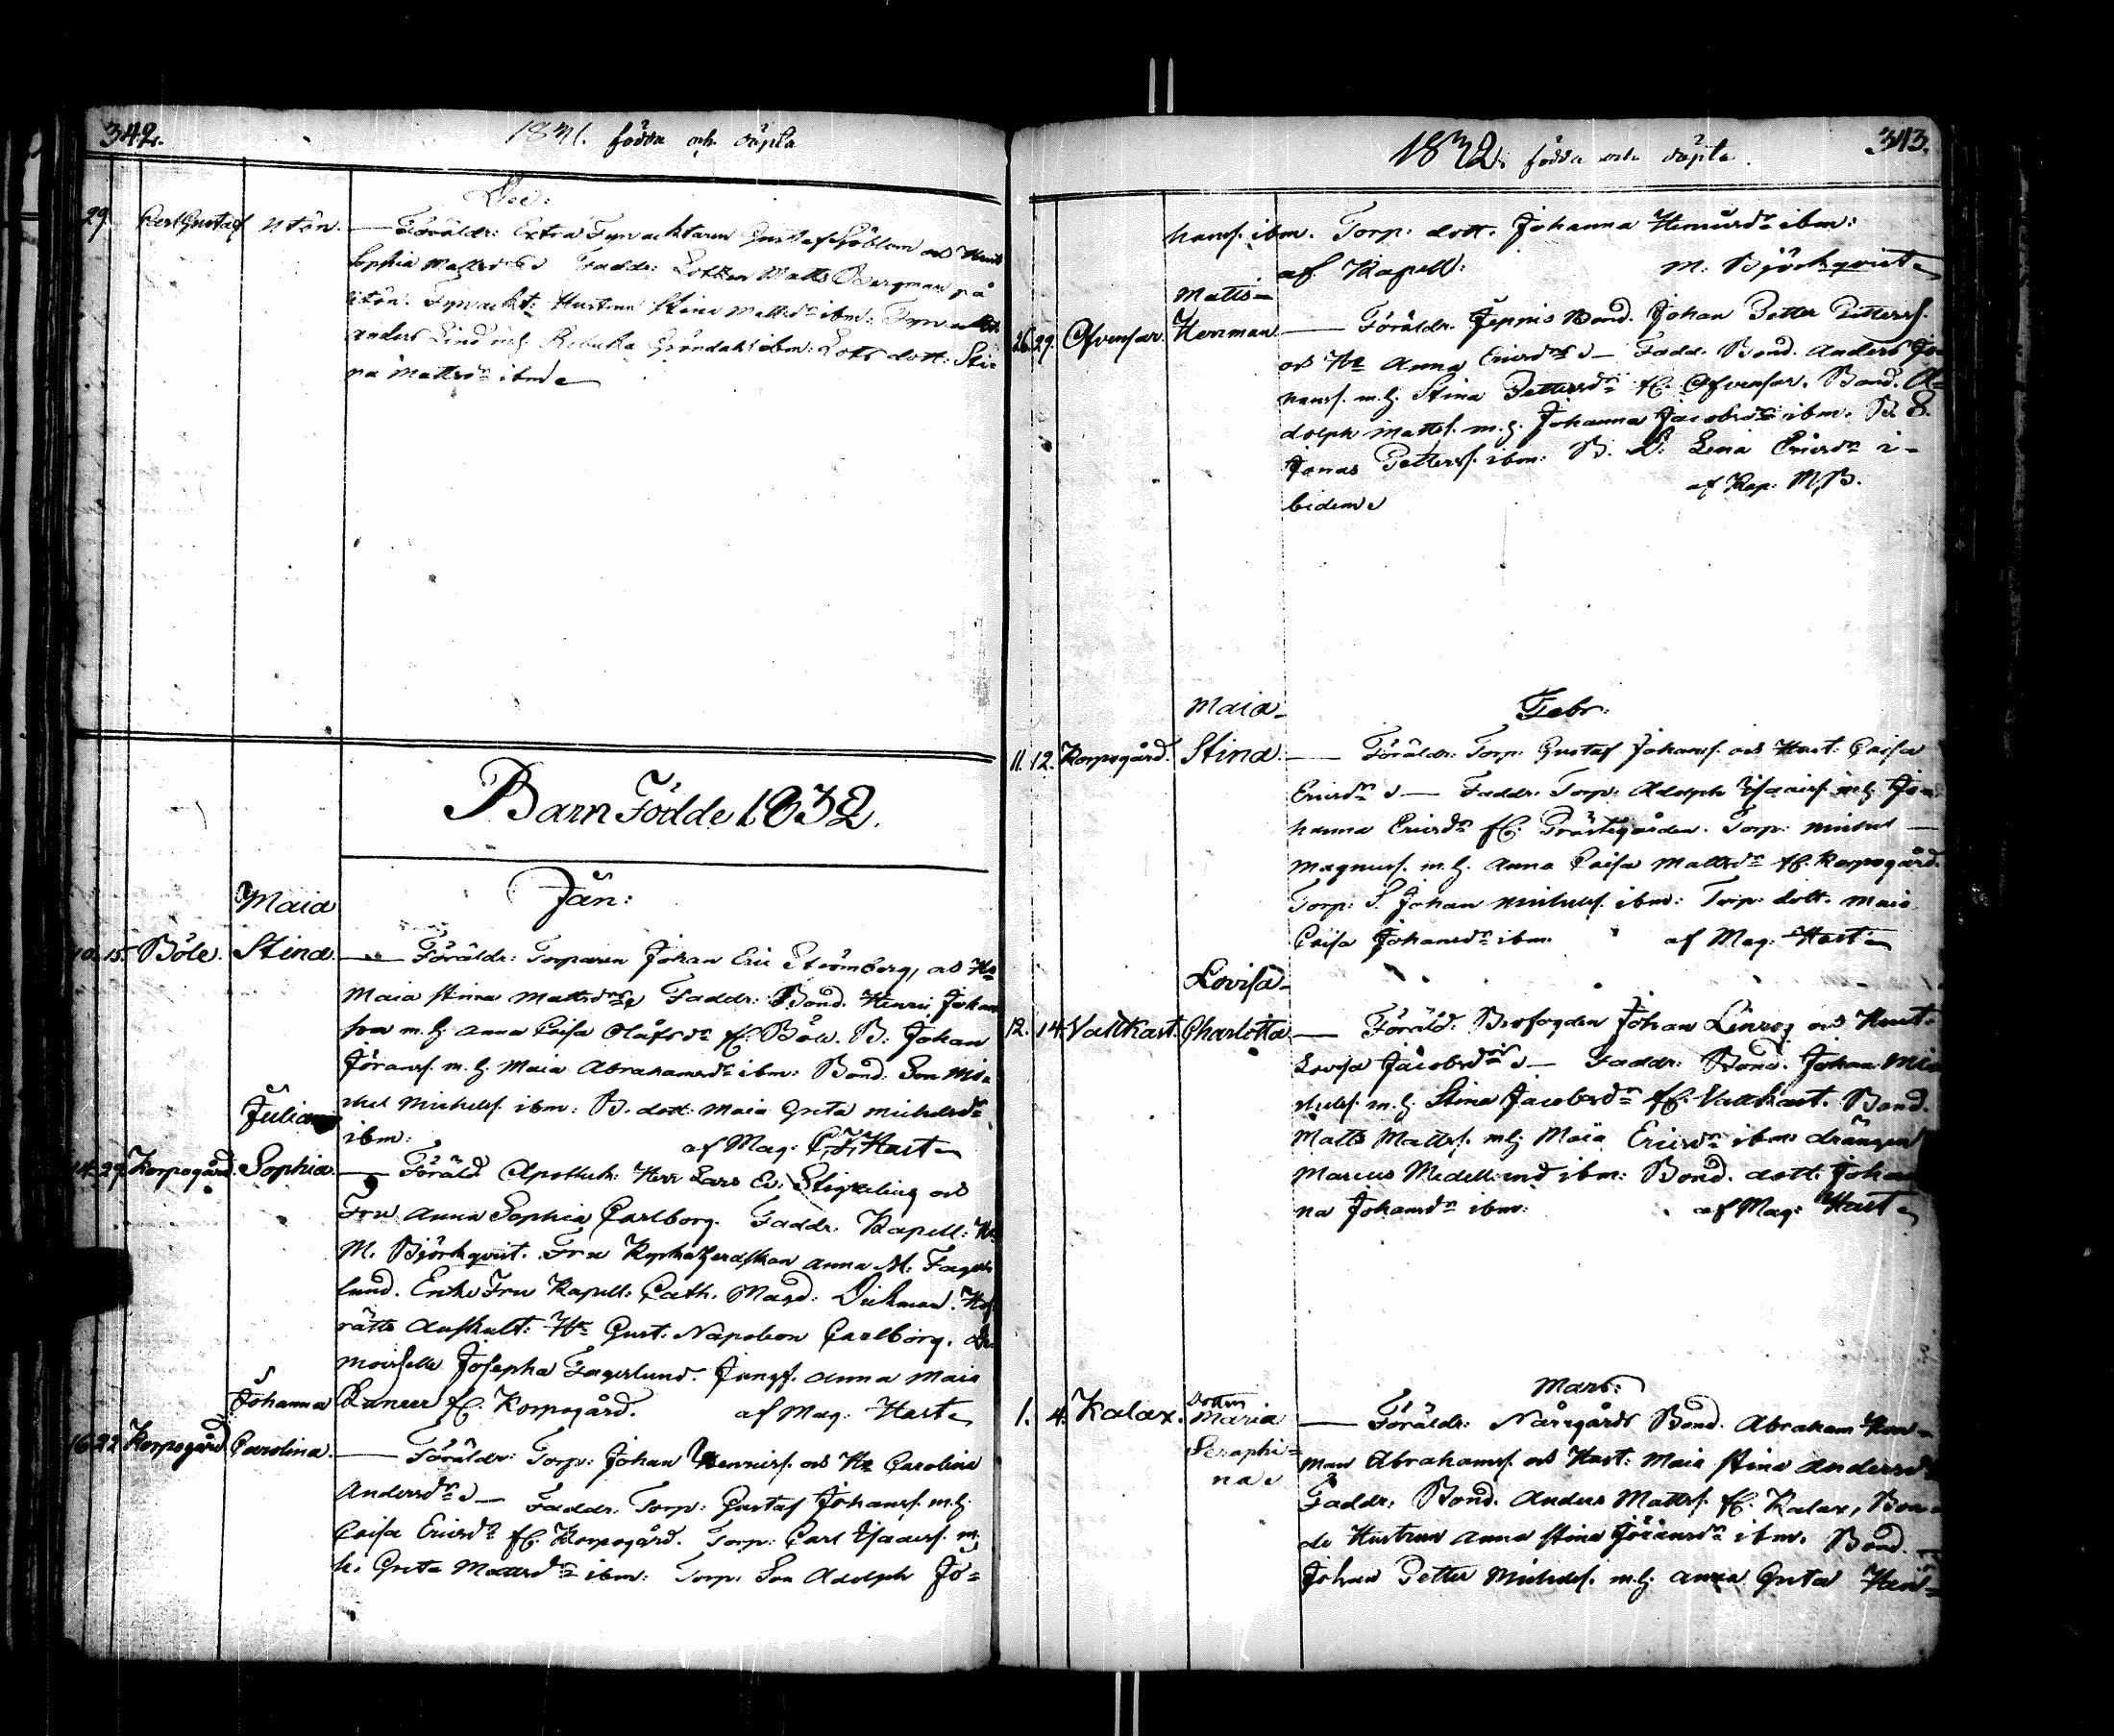 342.
1831. födda och döpta
Dec:
29. Carl Gustaf Utön. — Föräldr: Extra Fyrvacktaren Gustaf Sjöblom och Hust
Sophia Mattsdr Faddr: Lotsen Matts Bergman på
Utön. Fyrvackt: Hustrun Stina Mattsdr ibm: Fyrvackt:
Anders Lind m.h. Rebecka Gröndahl ibm: Lots dott: Sti-
na Mattsdr ibm
Barn Födde 1832.
Jan:
Maia
10. 15. Böle. Stina — Föräldr: Torparen Johan Eric Strömberg, och Hu
Maia Stina Mattsdr Faddr: Bond. Henric Johans
son m.h. Anna Caisa Olafsdr fr. Böle. B: Johan
Jöranss. m.h. Maia Abrahamsdr ibm: Bond: Son Mi-
chel Michelss. ibm: B. dott: Maia Greta Michelsdr
ibm: af Mag: C.F. Hast
Juliana
14. 29. Korpogård. Sophia. — Föräld Apothek: Herr Lars Ev: Stigzelius och
Fru Anna Sophia Carlborg. Faddr: Kapell: Hr
M. Björkqvist. Fru Kyrkoherdskan Anna M. Fager
lund. Enke Fru Kapell: Cath. Magd: Dickman. Hof
rätts Auskult: Hr Gust. Napoleon Carlborg. De-
moiselle Josepha Fagerlund. Jungf. Anna Maia
fr. Korpogård. af Mag: Hast
Johanna
16. 22 Korpogård Carolina. — Föräldr: Torp: Johan Henricss. och Hu Carolina
Andersdr — Faddr: Torp: Gustaf Johanss. m.h.
Caisa Ericsdr fr. Korpogård. Torp: Carl Isaacss. m.
h. Greta Mattsdr ibm: Torp: Son Adolph Jo-
1832. födda och döpta.
343.
hanss. ibm. Torp: dott. Johanna Henricsdr ibm:
af Kapell: M. Björkqvist
Matts-
26. 29. Ofvensar. Herrman — Föräldr. Jennis Bond. Johan Petter Petterss.
och Hu Anna Ericsdr — Fadd. Bond. Anders Jo-
hanss. m.h. Stina Pettersdr fr. Ofvensar. Bond. A-
dolph Mattss. m.h. Johanna Jacobsdr ibm. B. S.
Jonas Petterss. ibm: B. D: Lena Ericsdr i-
bidem af Kap: M.B.
Febr:
Maia-
11. 12. Korpogård. Stina. — Föräldr: Torp: Gustaf Johanss. och Hust: Caisa
Ericsdr — Faddr. Torp: Adolph Isaacss. m.h. Jo-
hanna Ericsdr fr. Prästegården. Torp: Michel
Magnuss. m.h. Anna Caisa Mattsdr fr. Korpogård.
Torp: S. Johan Michelss. ibm: Torp: dott. Maia
Caisa Johansdr ibm. af Mag: Hast
Lovisa-
12. 14. Vattkast. Charlotta — Föräld: Brofogden Johan och Hust:
Lovisa Jacobsdr — Faddr: Bond. Johan Mi
chelss. m.h. Stina Jacobsdr fr. Vattkast. Bond.
Matts Mattss. m.h. Maia Ericsdr ibm: drängen
Marcus ibm: Bond. dott. Johan
na Johansdr ibm: af Mag: Hast
Mars:
1. 4. Kalax. Dotten Maria — Föräldr: Norrgårds Bond. Abraham Her-
Seraphi- man Abrahamss. och Hust: Maia Stina Andersdr
na Faddr: Bond. Anders Mattss. fr. Kalax, Bon-
de Hustrun Anna Stina Jöransdr ibm. Bond.
Johan Petter Michelss. m.h. Anna Greta Hen-